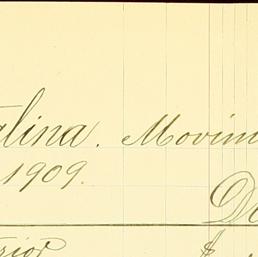 alina. Movim
1909.
De
erior $